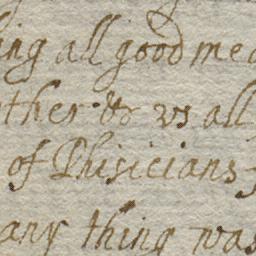 ing all good mea
ther & vs all
of Phisicians
any thing was